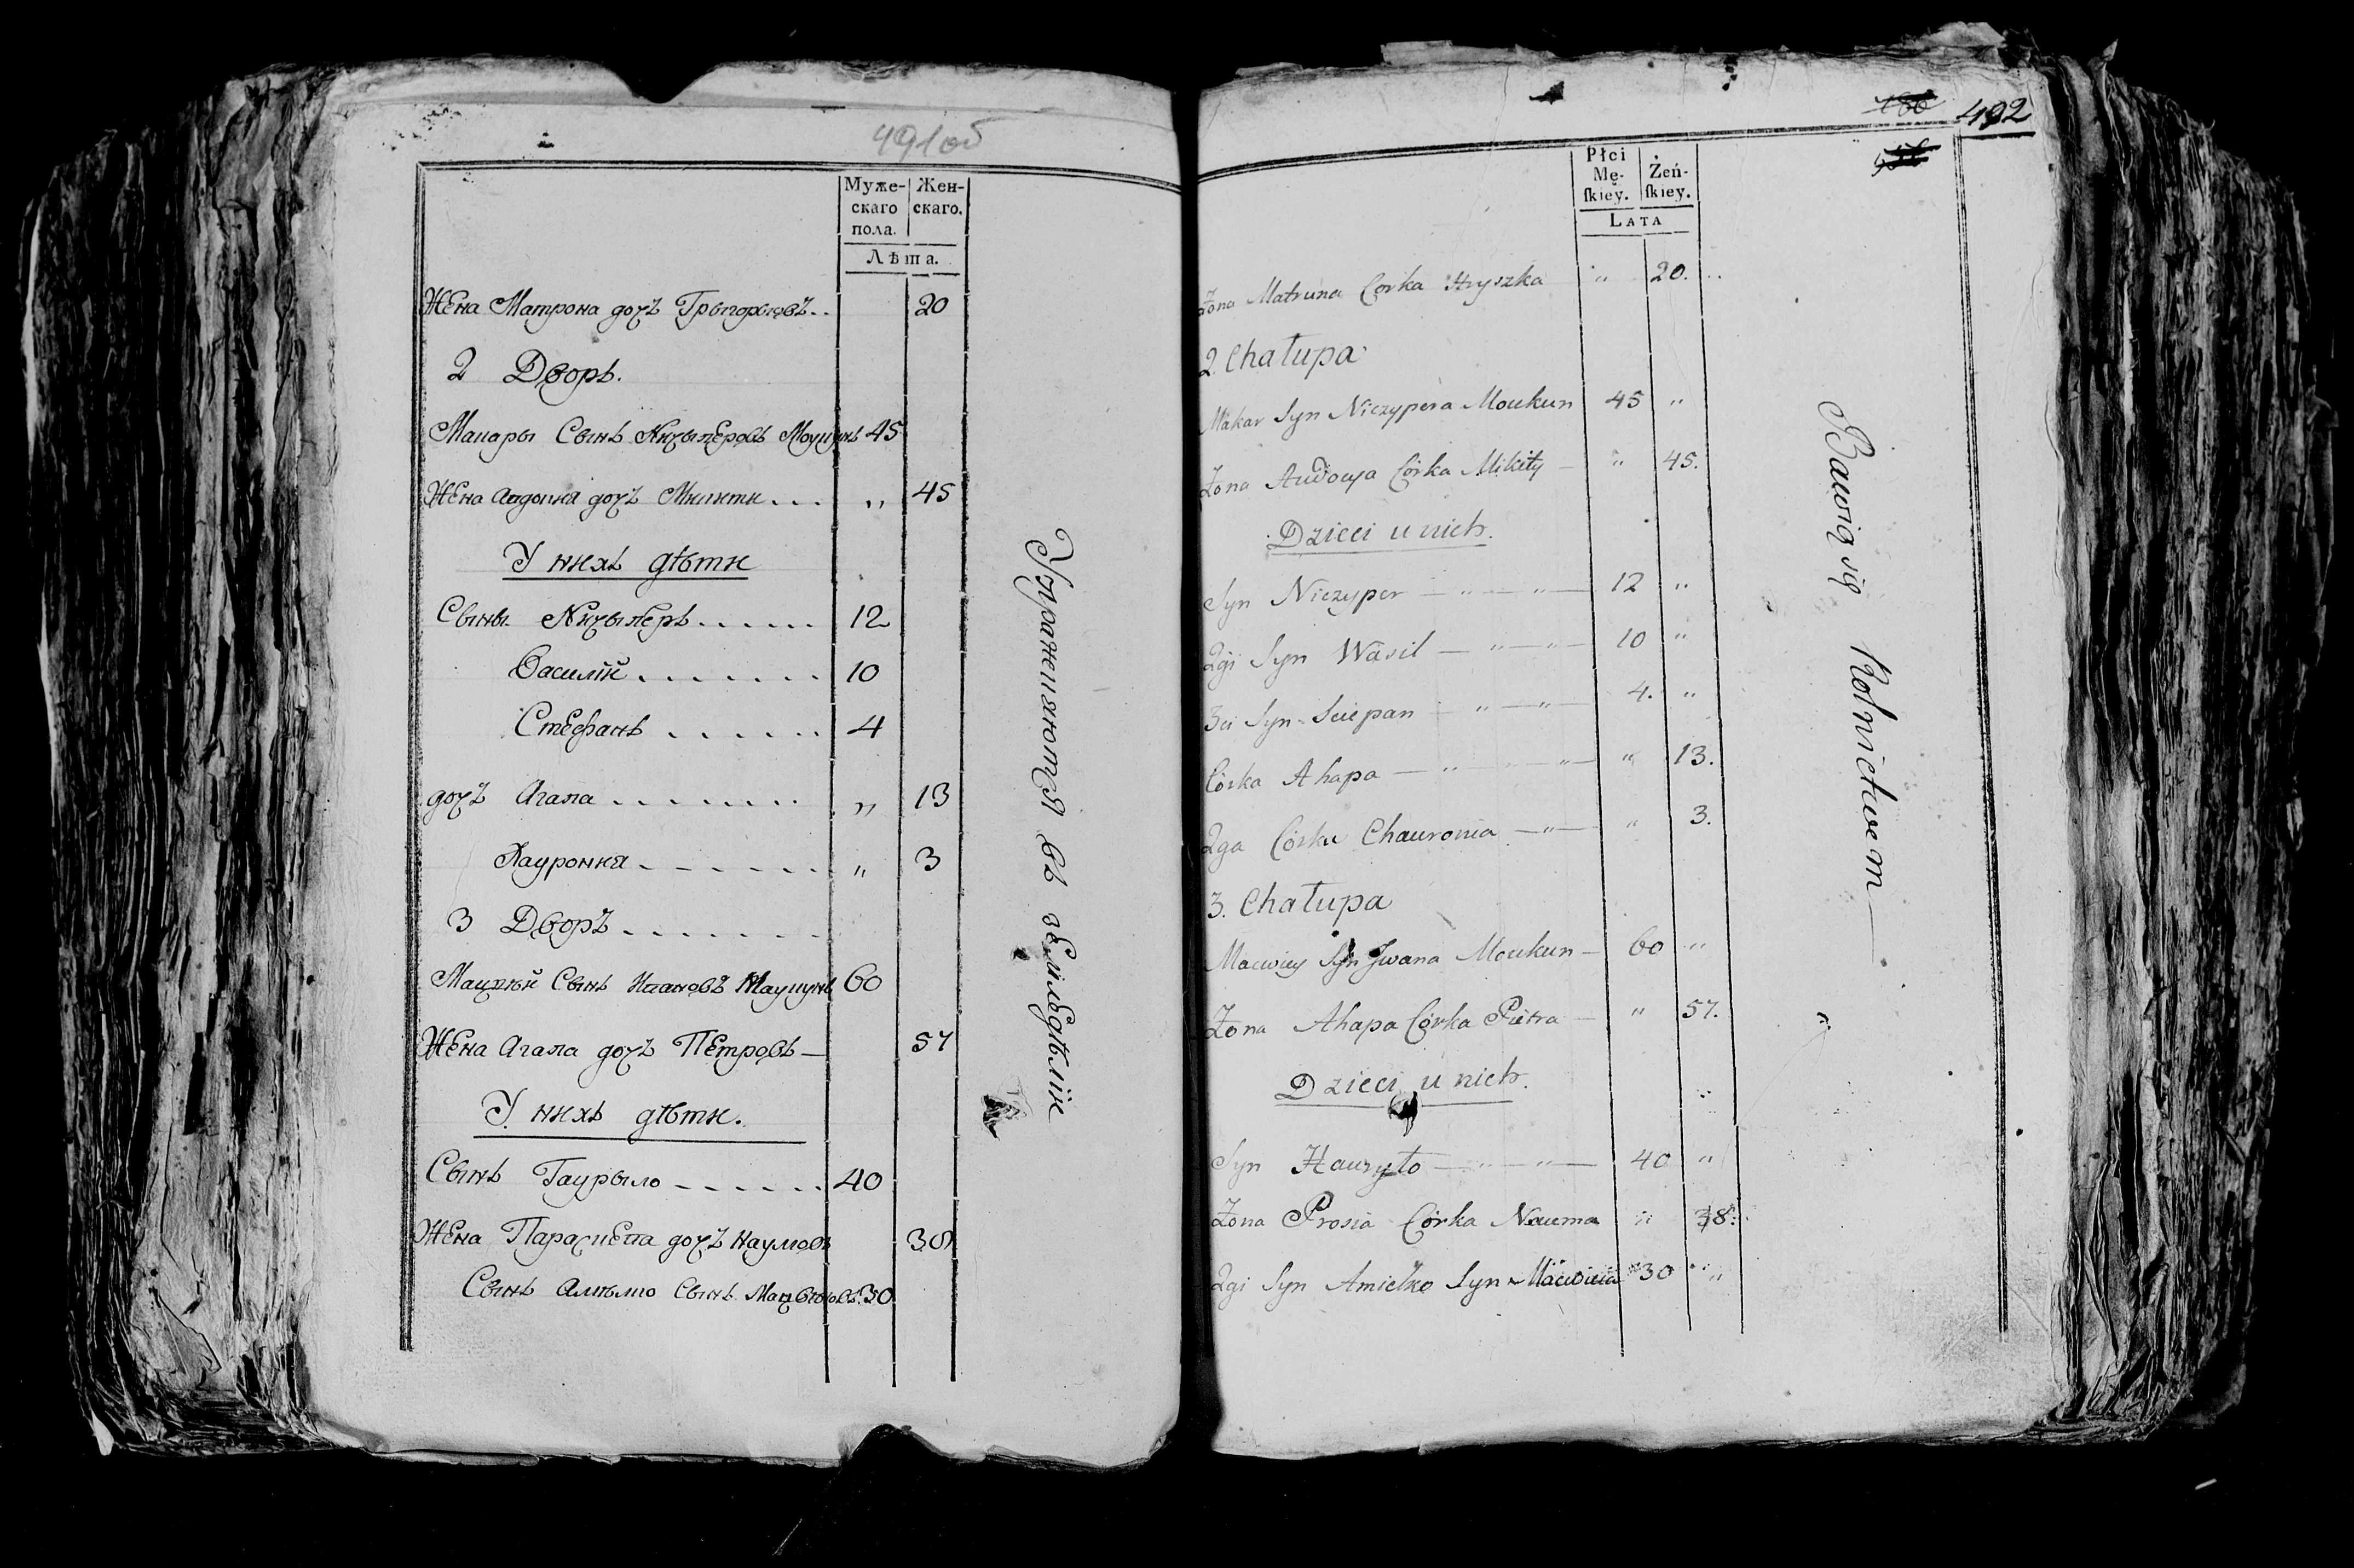 491об
Муже-
скаго
пола.
Жен-
скаго.
Лѣта.
Жена Матрона дочъ Грыгорьовъ.. 20
2 Дворъ.
Макары Сынъ Ничыперовъ Моукунъ 45
Жена Авдоция дочъ Микиты... „ 45
У нихъ дѣти
Сыны Ничыперъ...... 12
Василій....... 10
Стефанъ...... 4
дочъ Агапа........ „ 13
Хаурония....... „ 3
3 Дворъ.......
Мацвѣй Сынъ Ивановъ Маукунъ 60
Жена Агапа дочъ Петровъ— 57
У нихъ дѣти.
Сынъ Гаурыло...... 40
Жена Параскева дочъ Наумовъ 38
Сынъ Амѣлко Сынъ Мацвѣювъ. 30
Упражняются въ земледѣліи
492
Płci
Mę-
ſkiey.
Żeń-
ſkiey.
LATA
Żona Matruna Corka Hryszka „ 20.
2. Chałupa
Makar Syn Niczypera Moukun 45 „
Żona Audocya Córka Mikity — „ 45.
Dzieci u nich.
Syn Niczyper — „ — „ — 12 „
2gi Syn Wasil — „ — „ — 10 „
3ci Syn Sciepan — „ — „ — 4. „
Córka Ahapa — „ — „ — „ 13.
2ga Córka Chauronia — „ — „ 3.
3. Chałupa
Maciwiey Syn Jwana Moukun — 60 „
Żona Ahapa Córka Pietra — „ 57.
Dzieci u nich.
Syn Hauryło — „ — „ — 40 „
Żona Prosia Córka Nauma „ 38.
2gi Syn Amiełko Syn Maciwieia 30 „
Bawią się Rolnictwem —